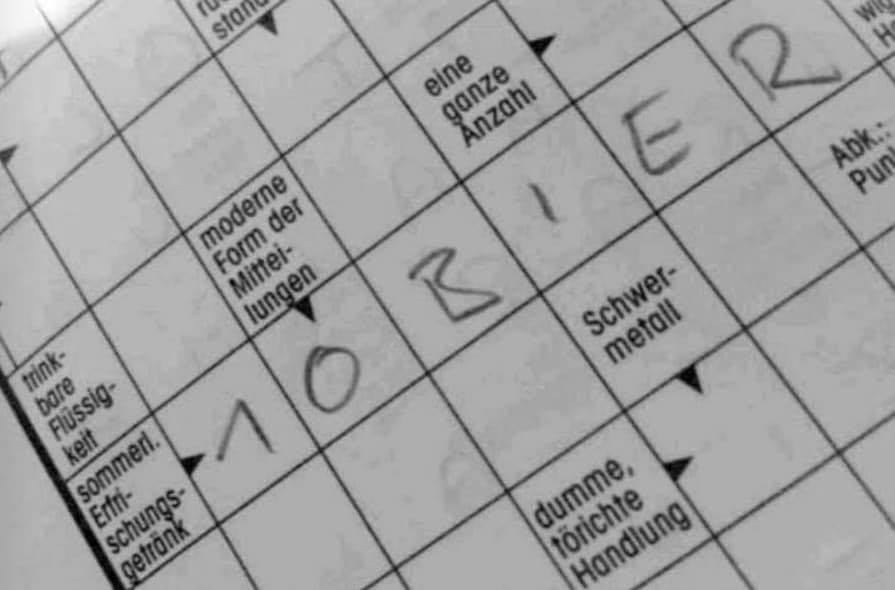 stand
eine
ganze
Anzahl
moderne
Form der
Mittei-
lungen
Abk.:
Schwer-
metall
trink-
bare
Flüssig-
keit
sommerl.
Erfri-
schungs-
getränk
10 BIER
dumme,
törichte
Handlung